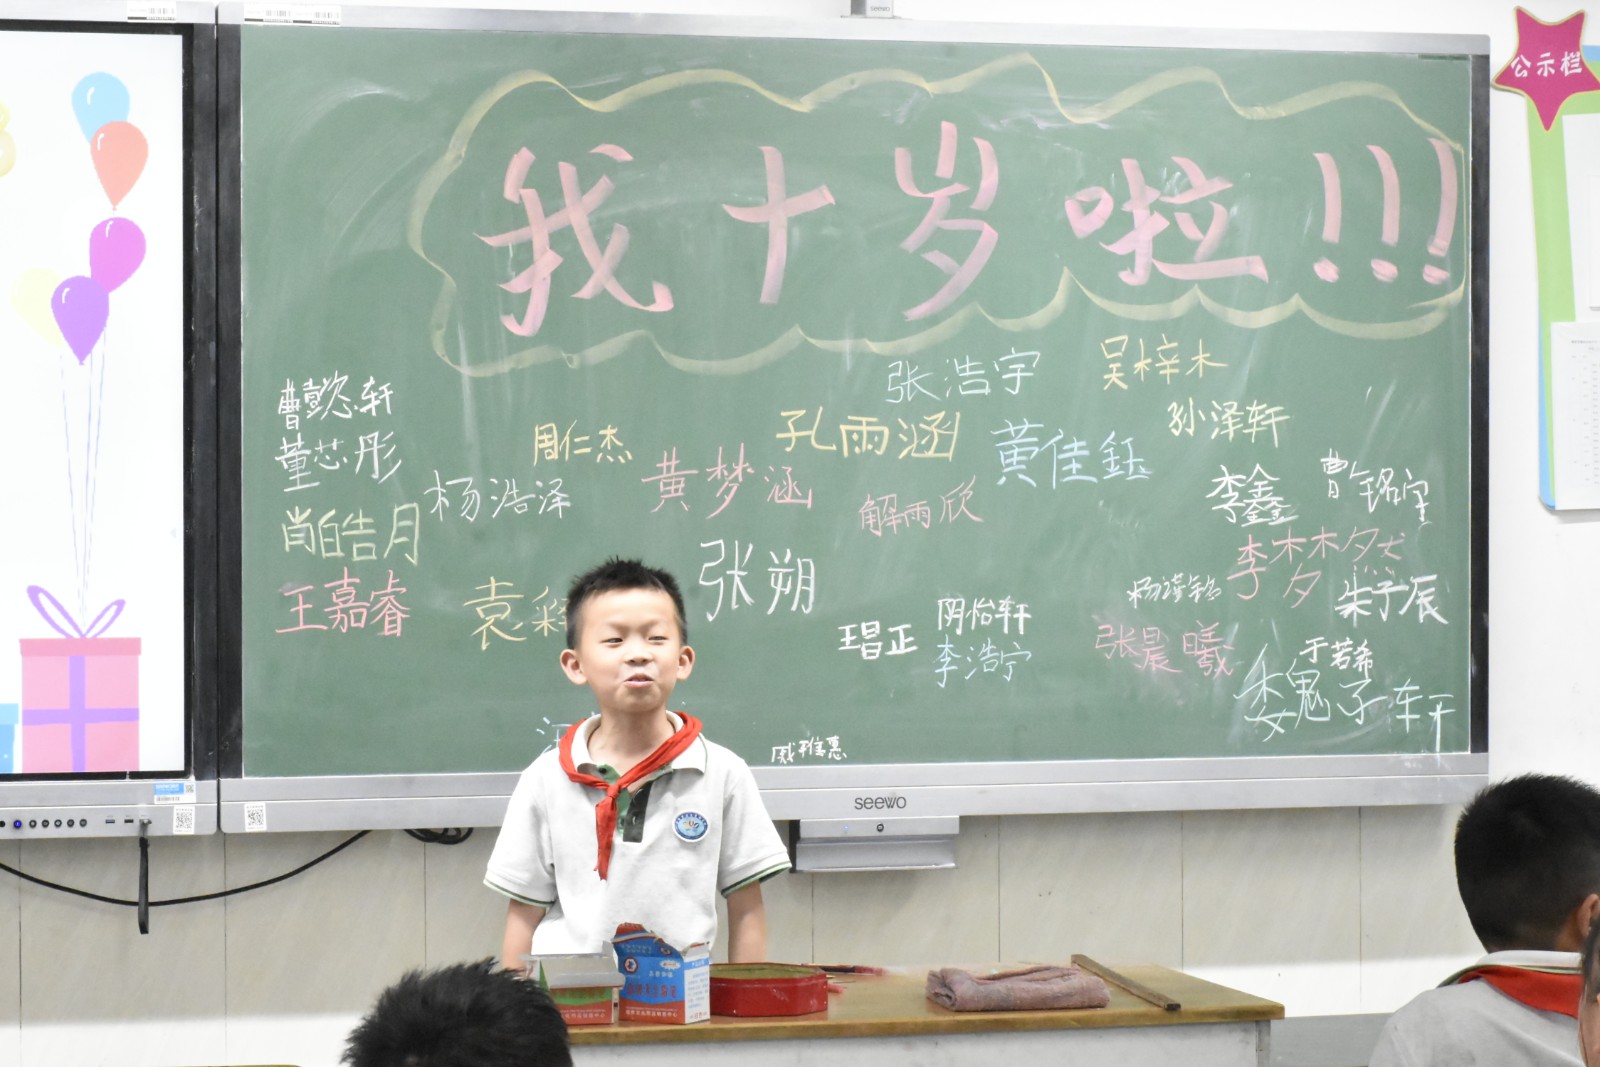 公示栏
我十岁啦!!!
张浩宇
吴梓木
曹懿轩
孙泽轩
周仁杰
孔雨涵
董芯彤
黄梦涵
黄佳钰
杨浩泽
解雨欣
李鑫
曹铭宝
肖皓月
张朔
李梦然
朱子辰
王嘉睿
袁
王昌正
阴怡轩
李浩宁
张晨曦
于若希
魏子轩
戚雅惠
seewo